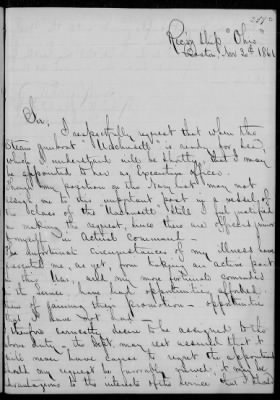 Rec'g Ship "Ohio"
Boston, Nov 20th 1861
Sir,
I respectfully request that when the
Steam Gunboat is ready for sea,
which I understand will be shortly, that I may
be appointed to her as Executive Officer.
my position on the Navy list may not
assign me to this important post in a vessel of
the class of the still I feel justified
in making the request, since there are officers junior
to myself in actual command -
The unfortunate circumstances of my illness have
prevented me, as yet, from taking an active part
in this War, while my more fortunate comrades
in the service have had opportunities afforded
them of gaining their promotion - opportunities
that I have not had -
I therefore earnestly desire to be assigned to the
above duty - the Dept. may rest assured that it
will never have cause to regret the appointment
should my request be favorably viewed, it may be
advantageous to the interests of the service that I should